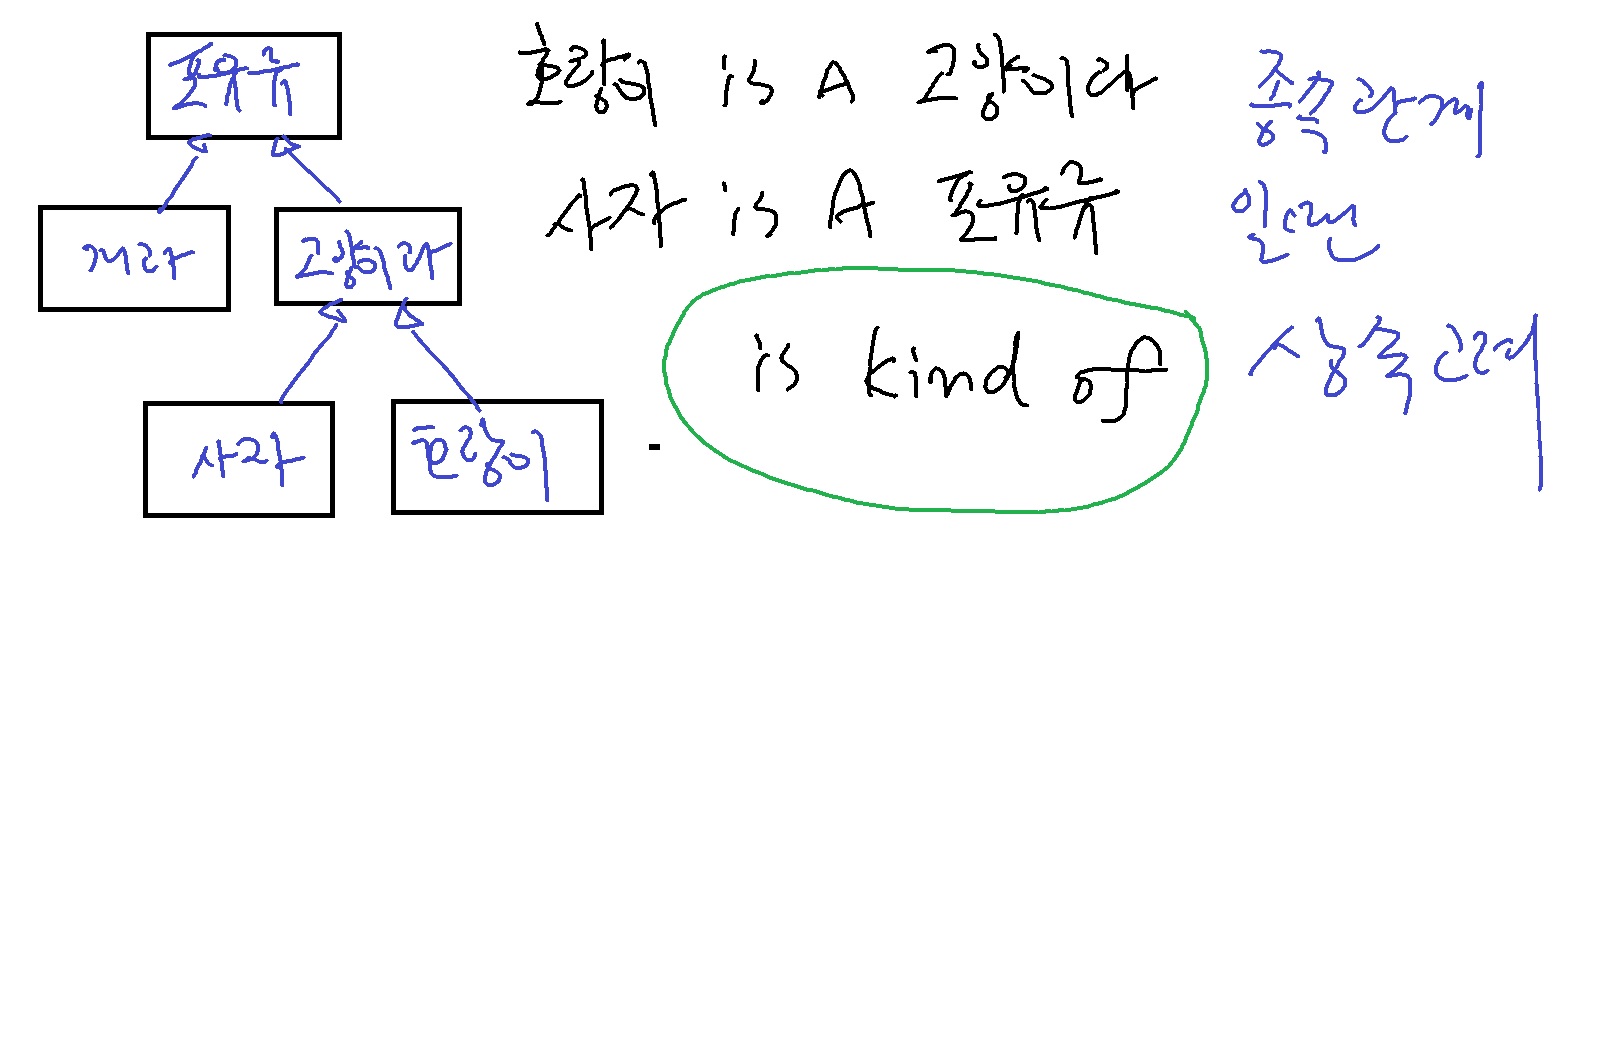 포유류
개과
고양이과
사자
호랑이
호랑이 is A 고양이과
사자 is A 포유류
is kind of
종속관계
일반
상속관계